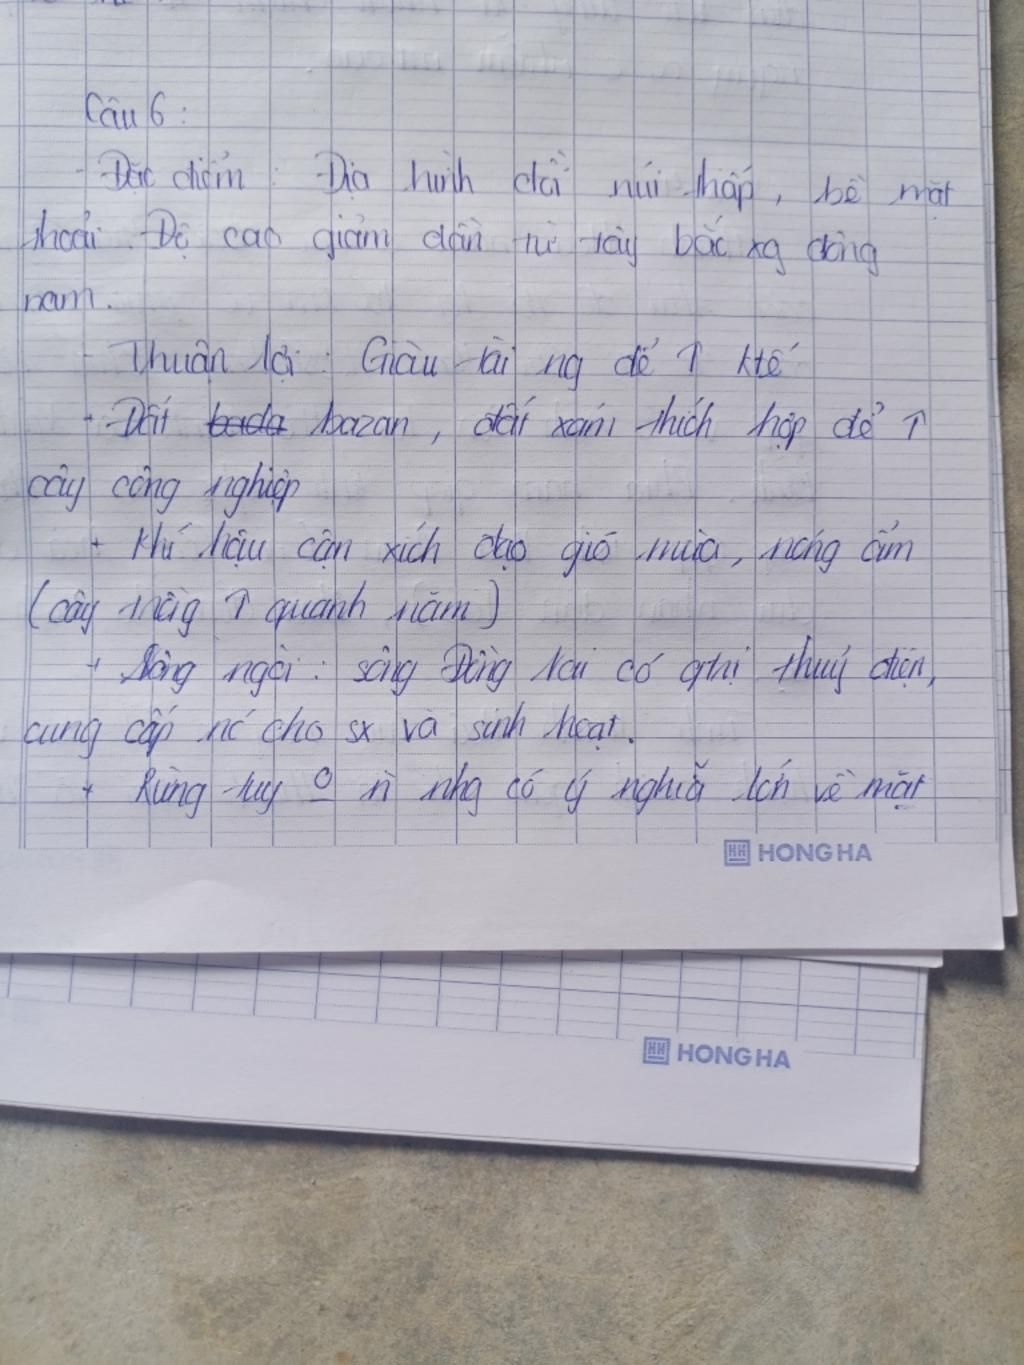 Câu 6:
- Đặc điểm: Địa hình đồi núi thấp, bề mặt
thoải. Độ cao giảm dần từ tây bắc xg đông
nam.
- Thuận lợi: Giàu tài ng để ↑ ktế
+ Đất bada bazan, đất xám thích hợp để ↑
cây công nghiệp
+ Khí hậu cận xích đạo gió mùa, nóng ẩm
(cây trồng ↑ quanh năm)
+ Sông ngòi: sông Đồng Nai có gtrị thuỷ điện,
cung cấp nc cho sx và sinh hoạt.
+ Rừng tuy o n nhg có ý nghĩa lớn về mặt
HONG HA
HONG HA